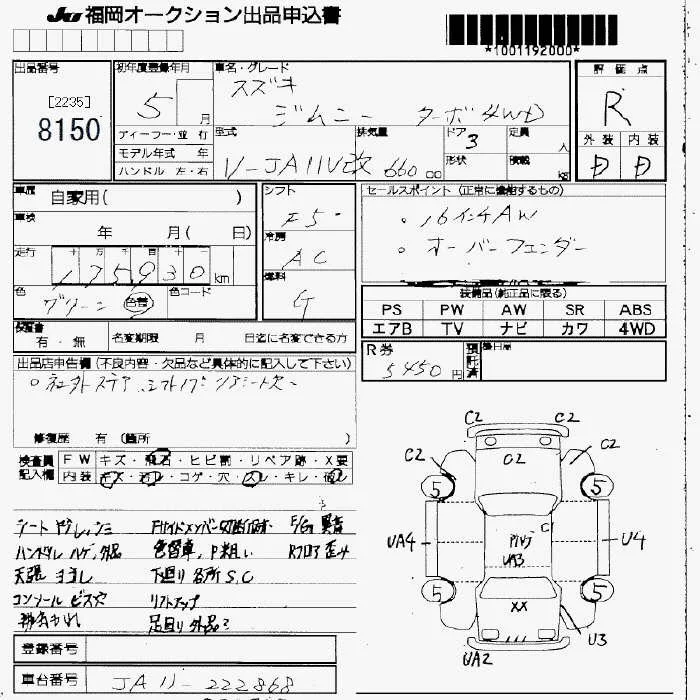 JU 福岡オークション出品申込書
*1001192000*
出品番号
[2235]
8150
初年度登録年月
5 月
ディーラー・並 行
モデル年式 年
ハンドル 左・右
車名・グレード
スズキ
ジムニー ターボ 4WD
型式 排気量 ドア 定員
3 人
V-JA11V改 660 cc
形状 積載 kg
評価点
R
外装 内装
D D
車歴 自家用( )
車検 年 月( 日)
走行
十 万 千 百 十
175930 km
色 色コード
グリーン 色替
シフト
F5
冷房
AC
燃料
G
セールスポイント (正常に機能するもの)
。16インチAW
。オーバーフェンダー
装備品(純正品に限る)
PS PW AW SR ABS
エアB TV ナビ カワ 4WD
保証書
有・無 名変期限 月 日迄に名変できる方
R券 5450円 預託済 後日品
出品店申告欄 (不良内容・欠品など具体的に記入して下さい)
。社外ステア、シフトノブ リアシート欠
修復歴 有 (箇所 )
検査員記入欄
FW キズ・飛石・ヒビ割・リペア跡・X要
内装 キズ・汚レ・コゲ・穴・スレ・キレ・破レ
シートヤブレ、シミ
ハンドル ハゲ、外品
色替車、P粗い
Rフロア歪み
天張ヨゴレ
下廻り各所S,C
コンソール ビス穴
リフトアップ
足廻り外品
登録番号
車台番号 JA11-222868
C2 C2
C2 C2 C2
5 5
C1
UA4 UA3 U4
5 5
XX
U3
UA2